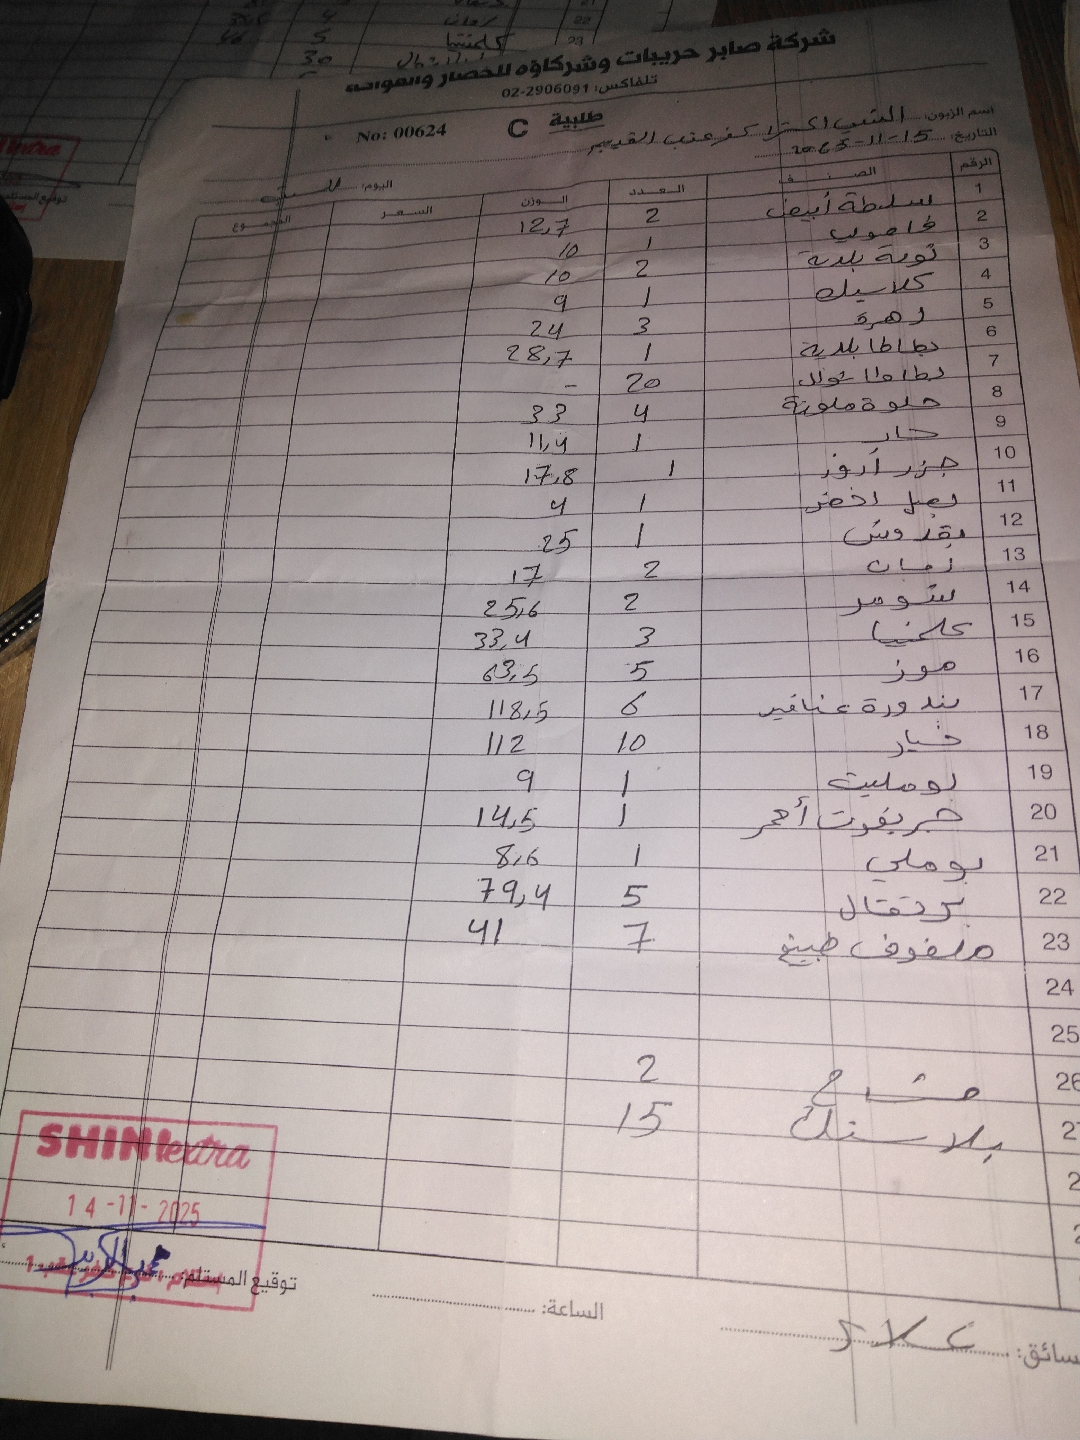 شركة صابر حريبات وشركاؤه للخضار والفواكه
تلفاكس: 02-2906091
طلبية C No: 00624
اسم الزبون:
التاريخ: 15-11-2025
اليوم: السبت
الرقم الصنف العدد الوزن السعر المجموع
1 سلطة أبيض 2 12,7
2 1 10
3 تومة بلدية 2 10
4 كلاسيك 1 9
5 زهرة 3 24
6 بطاطا بلدية 1 28,7
7 بطاطا 20 -
8 حلوة ملونة 4 33
9 حار 1 11,4
10 جزر 1 17,8
11 بصل اخضر 1 4
12 بقدونس 1 25
13 رمان 2 17
14 شومر 2 25,6
15 كلمنتينا 3 33,4
16 موز 5 63,5
17 بندورة عناقيد 6 118,5
18 خيار 10 112
19 بومليت 1 9
20 جريفوت أحمر 1 14,5
21 بوملي 1 8,6
22 برتقال 5 79,4
23 ملفوف طبيخ 7 41
24
25
26 مشاح 2
27 بلاستك 15
SHINI extra
14-11-2025
توقيع المستلم:
الساعة:
سائق: